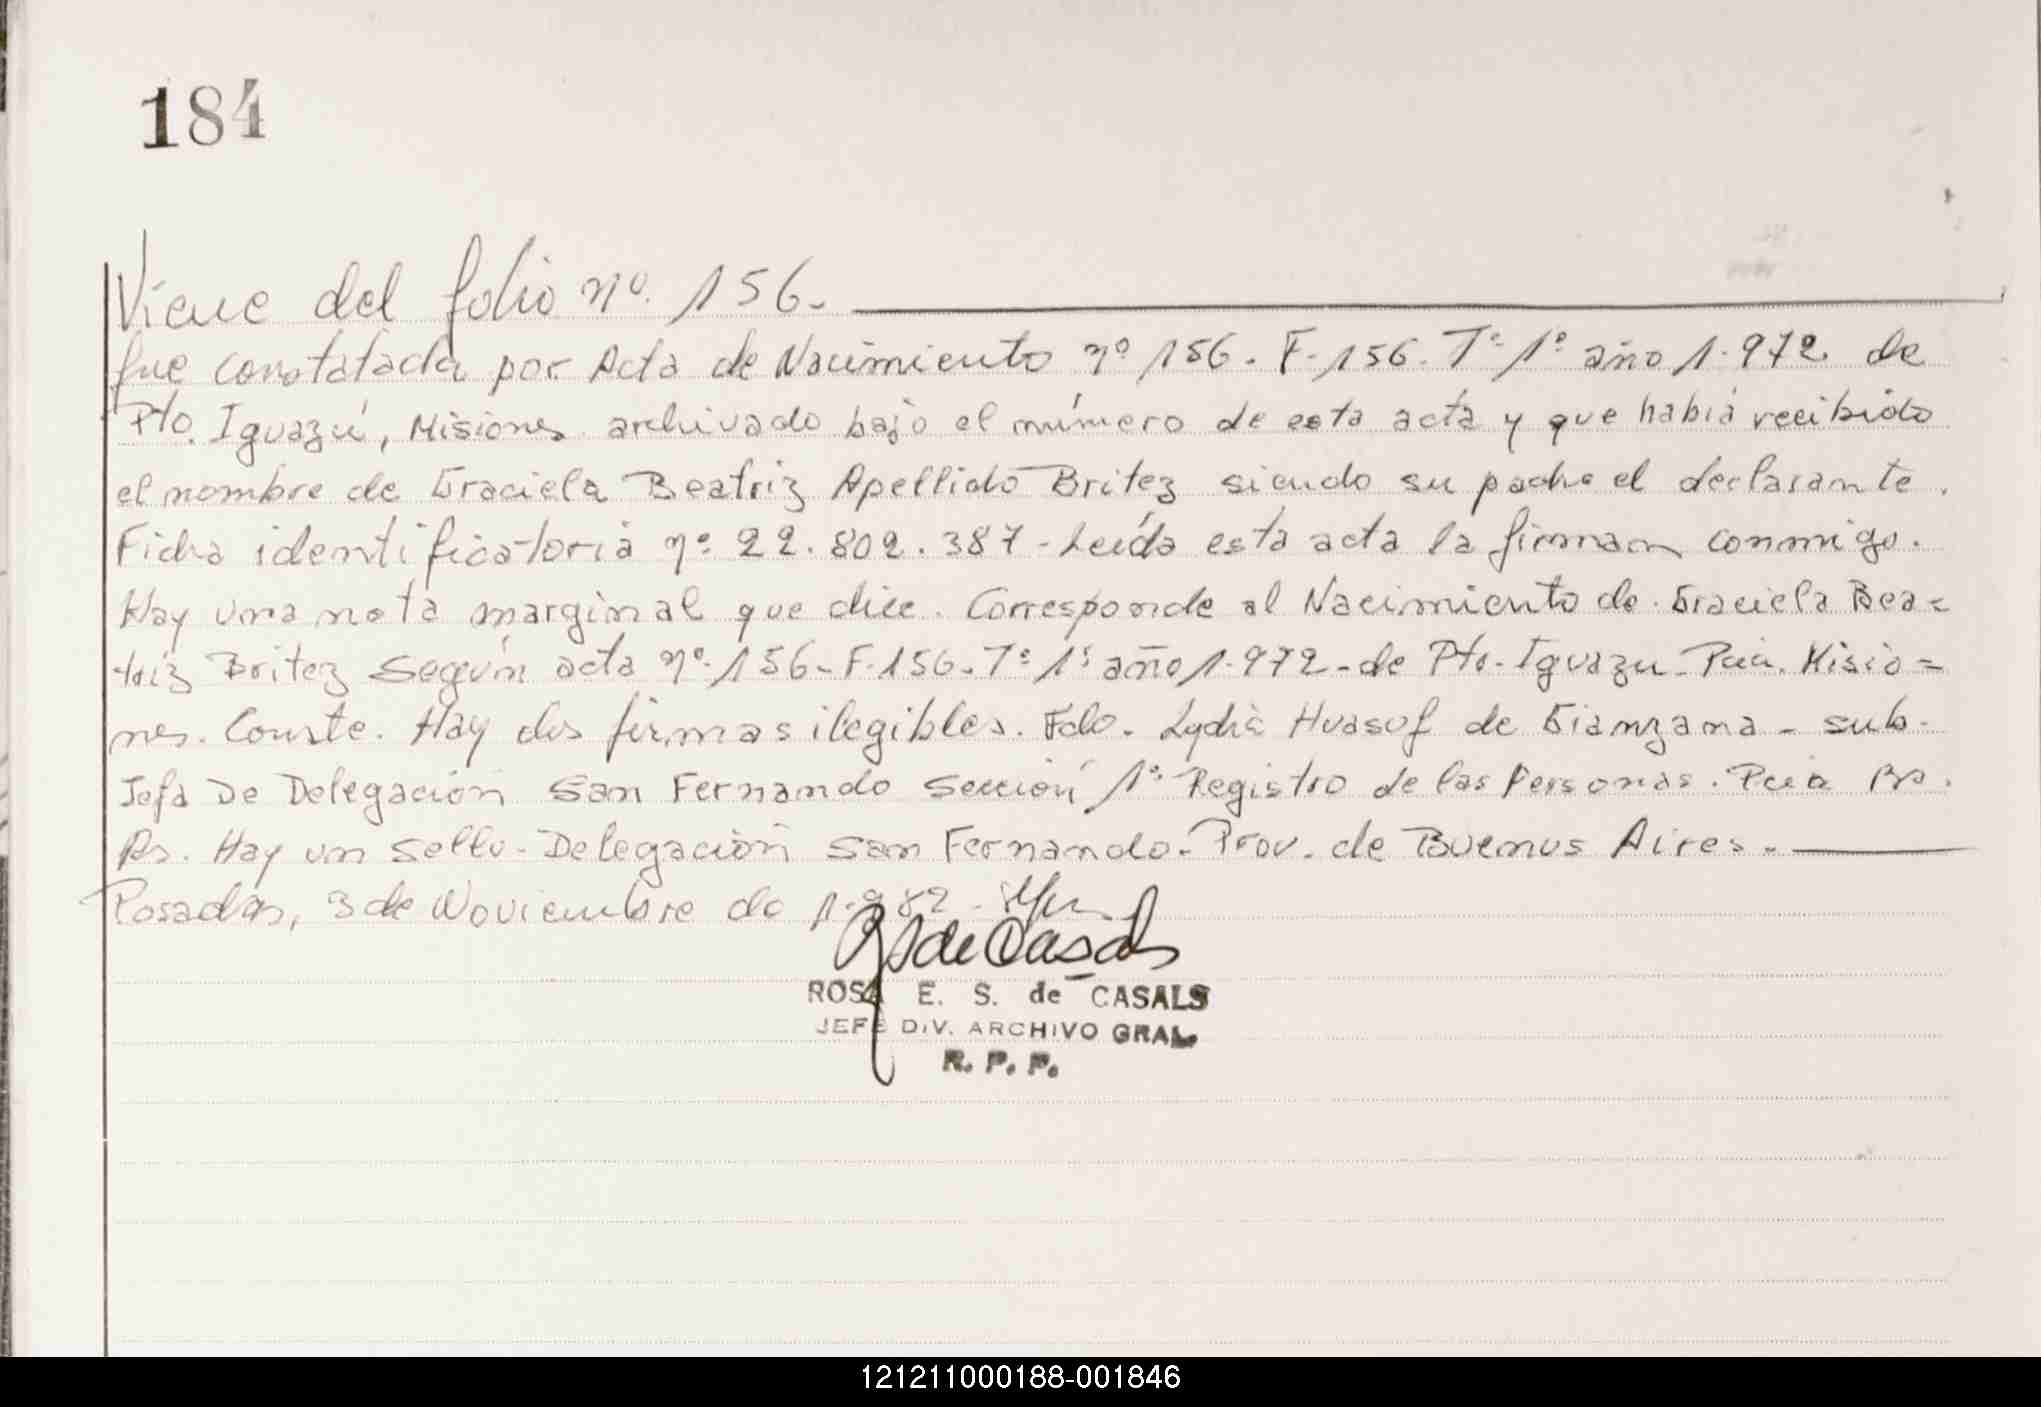 184
Viene del folio nº. 156.
fue constatada por Acta de Nacimiento nº 156. F. 156. Tº 1º año 1.972 de
Pto. Iguazú, Misiones archivado bajo el número de esta acta y que había recibido
el nombre de Graciela Beatriz Apellido Britez siendo su padre el declarante.
Ficha identificatoria nº 22.802.387 - Leída esta acta la firman conmigo.
Hay una nota marginal que dice. Corresponde al Nacimiento de Graciela Bea=
triz Britez según acta nº. 156 - F. 156 - Tº 1º año 1.972 - de Pto. Iguazu - Pcia. Misio=
nes. Conste. Hay dos firmas ilegibles. Fdo. Lydia de Gianzana - sub-
Jefa De Delegación San Fernando Sección 1º Registro de las Personas. Pcia Bs.
As. Hay un sello - Delegación San Fernando - Prov. de Buenos Aires.
Posadas, 3 de Noviembre de 1.982 -
de Casals
ROSA E. S. de CASALS
JEFE DIV. ARCHIVO GRAL.
R. P. P.
121211000188-001846